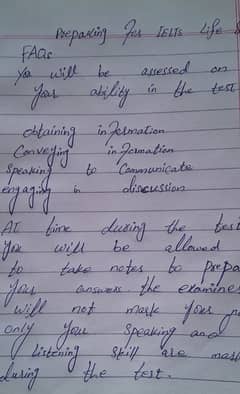 Preparing for IELTS life
FAQs
You will be assessed on
your ability in the test
obtaining information
Conveying information
Speaking to Communicate
engaging in discussion
AT time during the test
you will be allowed
to take notes to prepa
your answers. the examine
will not mark your
only your speaking and
listening skill are mar
during the test.